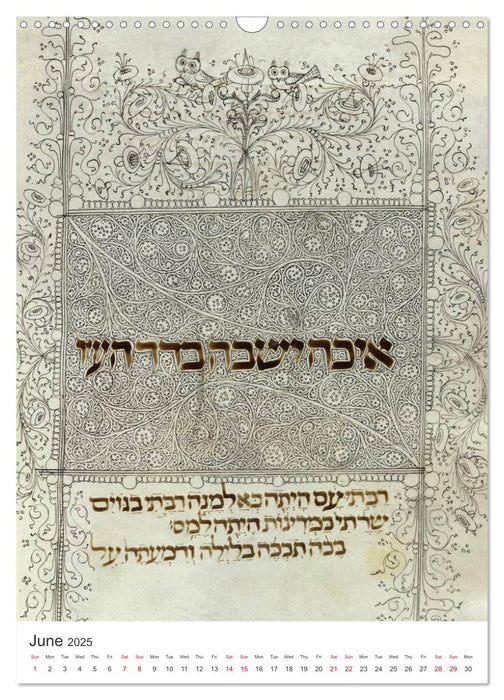 איכה ישבה בדד העיר
רבתי עם היתה כאלמנה רבתי בגוים
שרתי במדינות היתה למס׃
בכה תבכה בלילה ודמעתה על
June 2025
Sun Mon Tue Wed Thu Fri Sat Sun Mon Tue Wed Thu Fri Sat Sun Mon Tue Wed Thu Fri Sat Sun Mon Tue Wed Thu Fri Sat Sun Mon
1 2 3 4 5 6 7 8 9 10 11 12 13 14 15 16 17 18 19 20 21 22 23 24 25 26 27 28 29 30